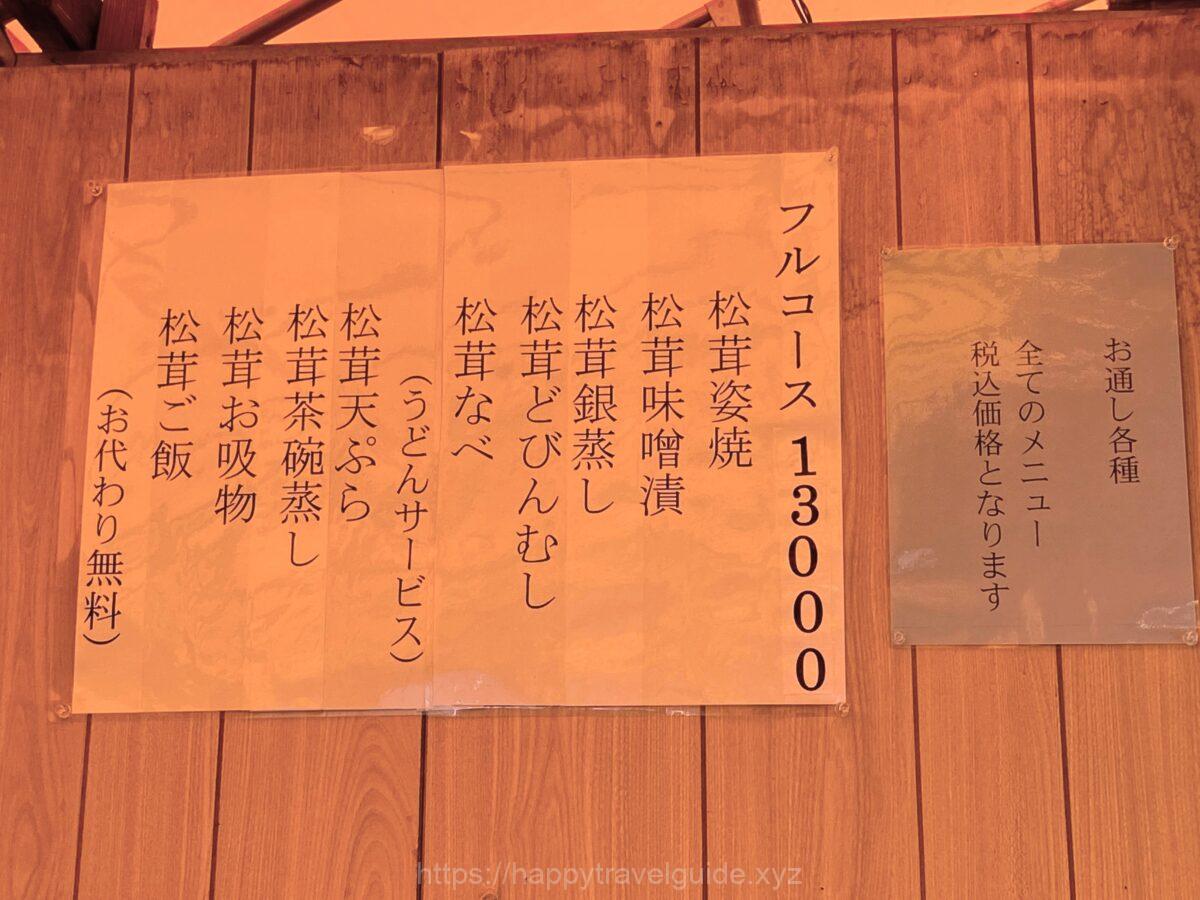 お通し各種
全てのメニュー
税込価格となります
フルコース 13000
松茸姿焼
松茸味噌漬
松茸銀蒸し
松茸どびんむし
松茸なべ
(うどんサービス)
松茸天ぷら
松茸茶碗蒸し
松茸お吸物
松茸ご飯
(お代わり無料)
https://happytravelguide.xyz